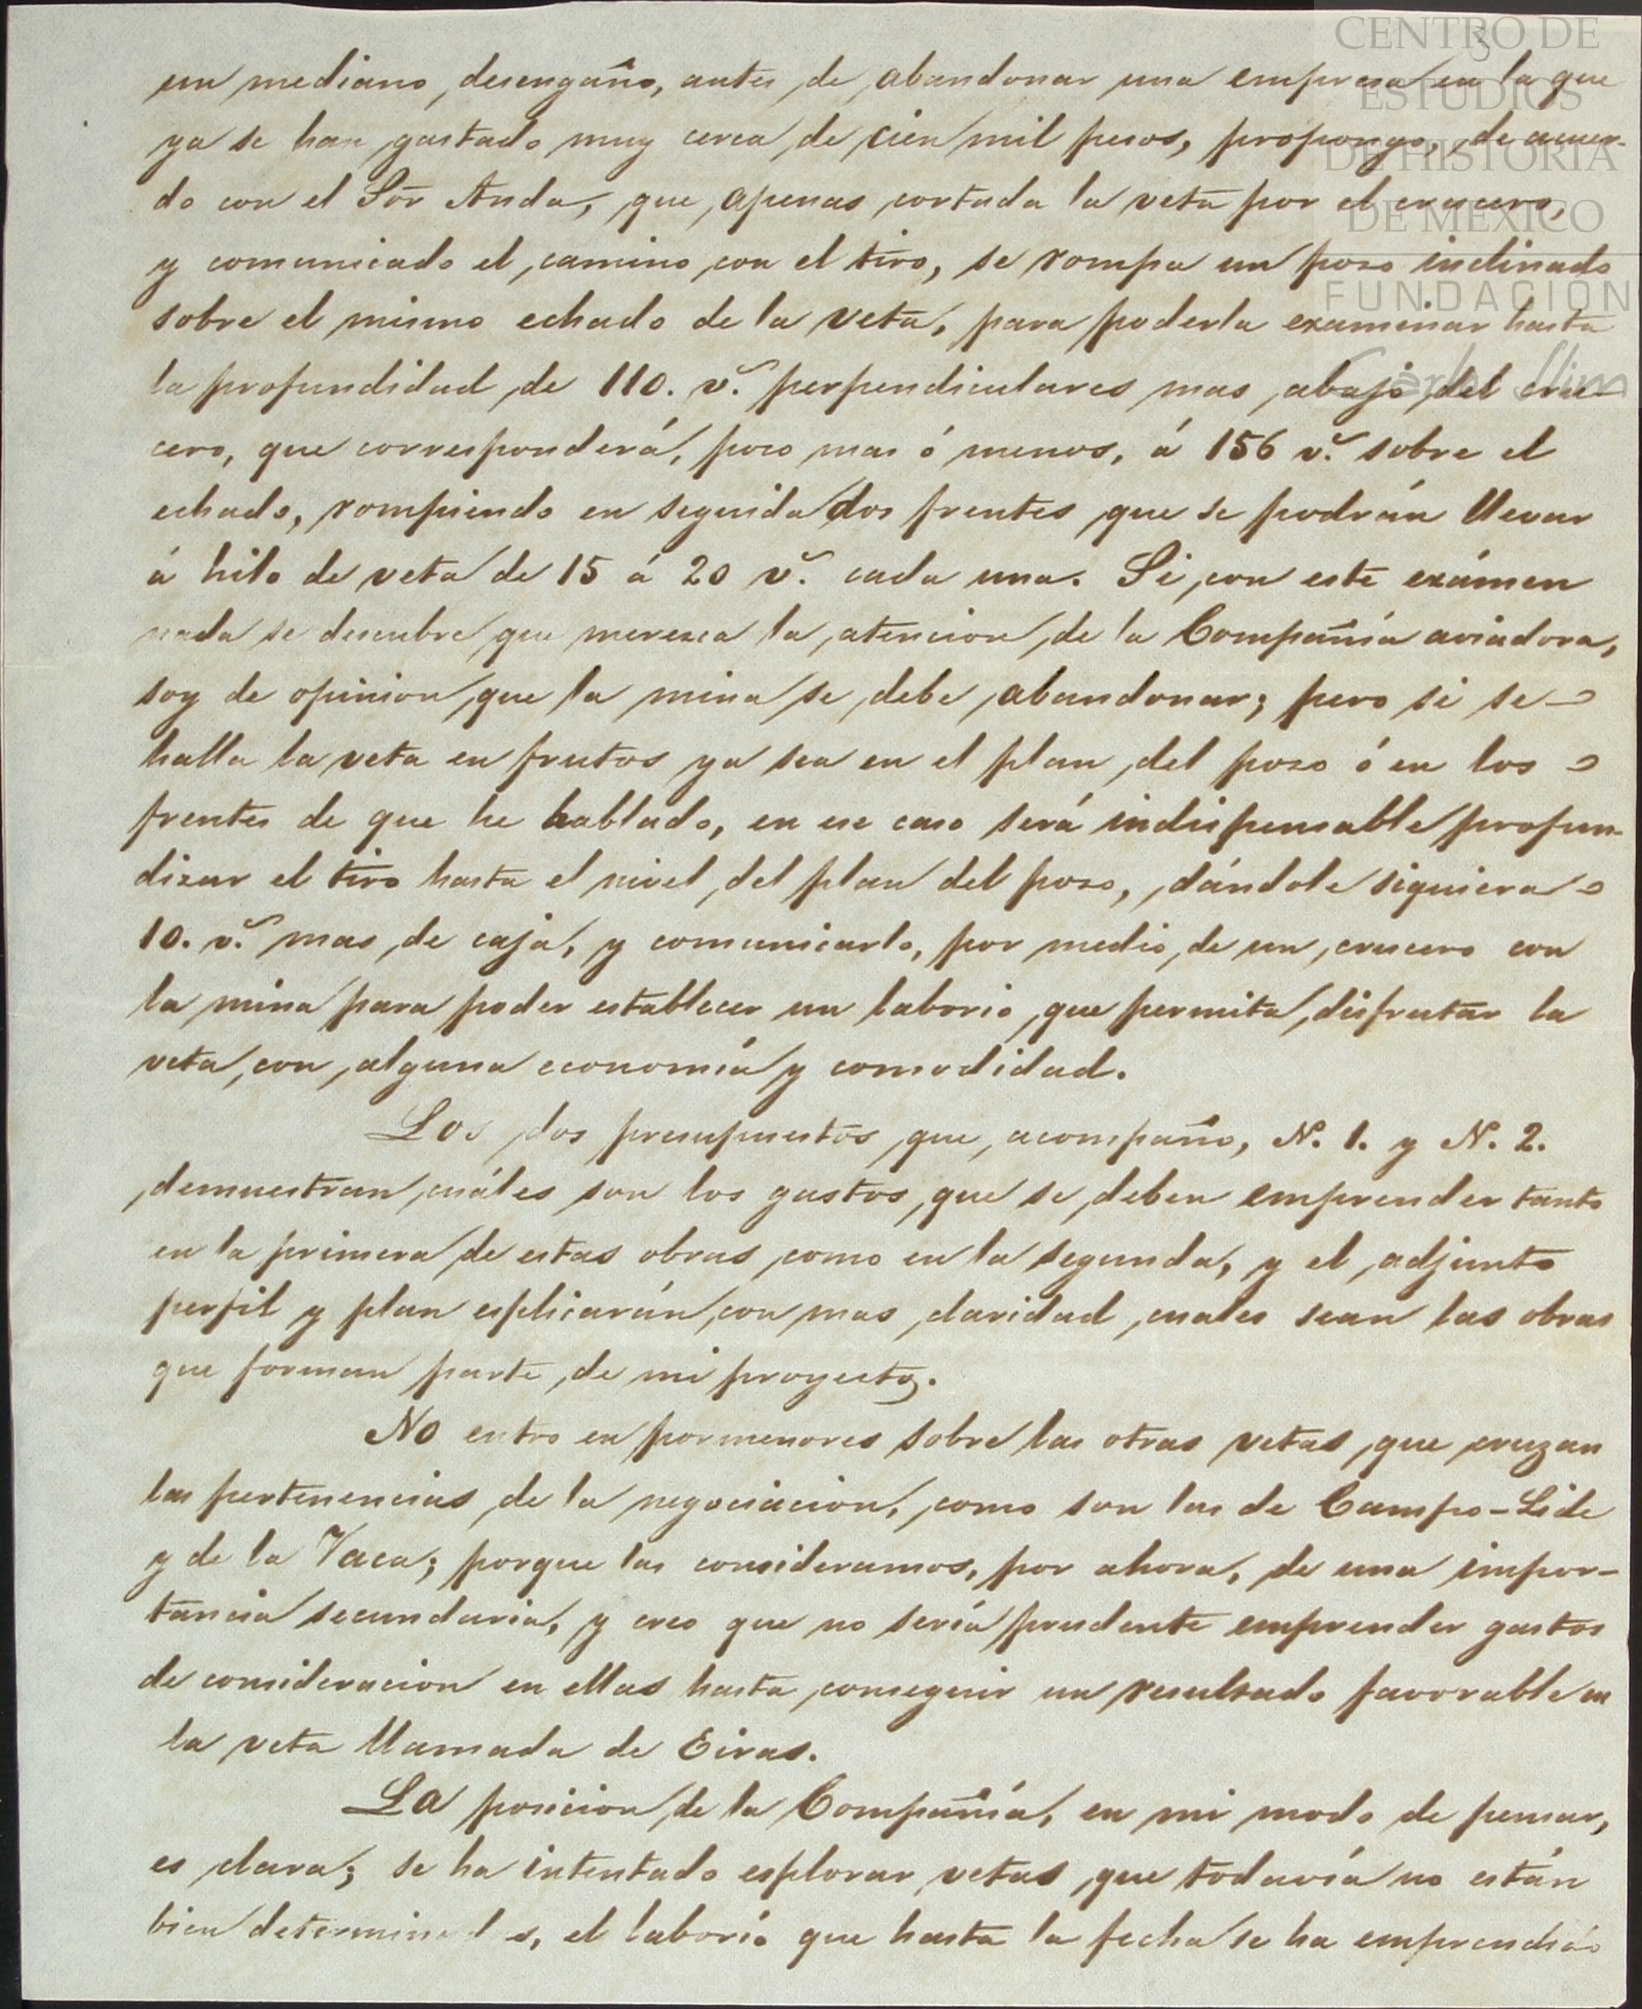 CENTRO DE
ESTUDIOS
DE HISTORIA
DE MEXICO
FUNDACIÓN
Carlos Slim
3
un mediano desengaño, antes de abandonar una empresa en la que
ya se han gastado muy cerca de cien mil pesos, propongo, de acuer-
do con el Sõr Anda, que apenas cortada la veta por el crucero,
y comunicado el camino con el tiro, se rompa un poso inclinado
sobre el mismo echado de la veta, para poderla examinar hasta
la profundidad de 110. v.ˢ perpendiculares mas abajo del cru-
cero, que corresponderá, poco mas ó menos, á 156 v.ˢ sobre el
echado, rompiendo en seguida dos frentes que se podrán llevar
á hilo de veta de 15 á 20 v.ˢ cada una. Si con este exámen
nada se descubre que meresca la atencion de la Compañía aviadora,
soy de opinion que la mina se debe abandonar; pero si se
halla la veta en frutos ya sea en el plan del poso ó en los
frentes de que he hablado, en ese caso será indispensable profun-
dizar el tiro hasta el nivel del plan del poso, dándole siquiera
10. v.ˢ mas de caja, y comunicarlo, por medio de un crucero con
la mina para poder establecer un laborio que permita disfrutar la
veta con alguna economía y comodidad.
Los dos presupuestos que acompaño, N. 1. y N. 2.
demuestran cuáles son los gastos que se deben emprender tanto
en la primera de estas obras como en la segunda, y el adjunto
perfil y plan esplicarán con mas claridad cuales sean las obras
que forman parte de mi proyecto.
No entro en pormenores sobre las otras vetas que cruzan
las pertenencias de la negociacion, como son las de Campo-Lide
y de la Vaca; porque las consideramos, por ahora, de una impor-
tancia secundaria, y creo que no sería prudente emprender gastos
de consideracion en ellas hasta conseguir un resultado favorable en
la veta llamada de Eiras.
La posicion de la Compañía, en mi modo de pensar,
es clara; se ha intentado esplorar vetas que todavía no están
bien determinadas, el laborío que hasta la fecha se ha emprendido